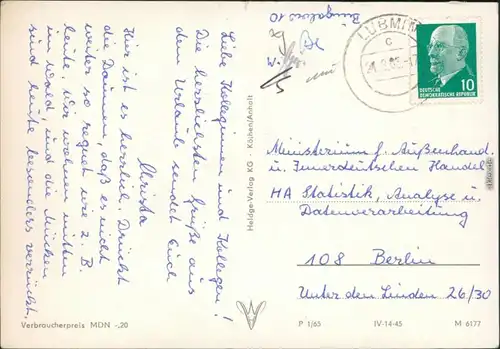 Liebe Kolleginnen und Kollegen!
Die herzlichsten Grüße aus
dem Urlaub sendet Euch
Christa
Hier ist es herrlich. Drückt
die Daumen, daß es nicht
weiter so regnet wie z. B.
heute. Wir wohnen mitten
im Wald, und die Mücken
sind heute besonders verrückt.
Verbraucherpreis MDN -,20
Heldge-Verlag KG - Köthen/Anhalt
Bungalow 10
LUBMIN
c
DEUTSCHE
DEMOKRATISCHE REPUBLIK
10
Ministerium f. Außenhand.
u. Innerdeutschen Handel
HA Statistik, Analyse u.
Datenverarbeitung
108 Berlin
Unter den Linden 26/30
P 1/65 IV-14-45 M 6177